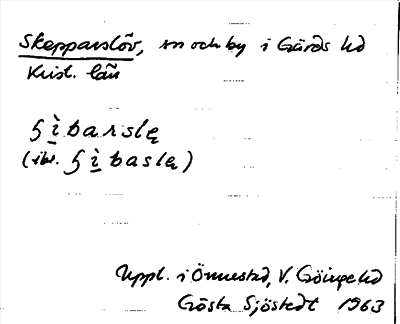 Skepparslöv, sn och by i Gärds hd
Krist. län
ʃì̱barslę
(ibl. ʃì̱baslę)
Uppl. i Önnestad, V. Göinge hd
Gösta Sjöstedt 1963